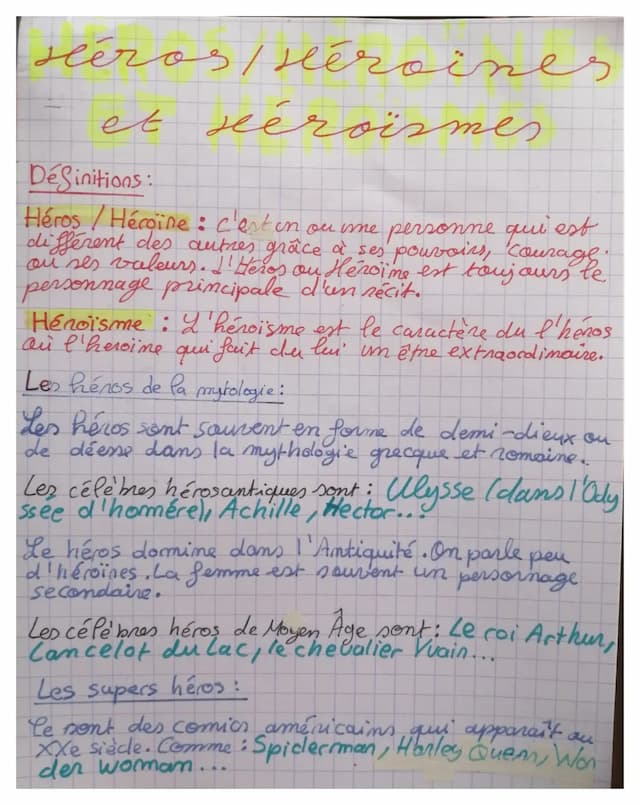 Héros/Héroïnes
et Héroïsmes
Définitions:
Héros / Héroïne : c'est un ou une personne qui est
différent des autres grâce à ses pouvoirs, courage.
ou ses valeurs. L'Héros ou Héroïne est toujours le
personnage principale d'un récit.
Héroïsme : L'héroïsme est le caractère du l'héros
où l'heroïne qui fait du lui un être extraordinaire.
Les héros de la mytologie:
Les héros sont souvent en forme de demi-dieux ou
de déesse dans la mythologie grecque et romaine..
Les célèbres hérosantiques sont : Ulysse (dans l'Ody
ssée d'homére), Achille, Hector...
Le héros domine dans l'Antiquité. On parle peu
d'héroïnes. La femme est souvent un personnage
secondaire.
Les célèbres héros de Moyen Âge sont: Le roi Arthur,
Lancelot du Lac, le chevalier Yvain...
Les supers héros :
Ce sont des comics américains qui apparaît au
XXe siècle. Comme : Spiderman, Harley Quenn, Won
der womam...